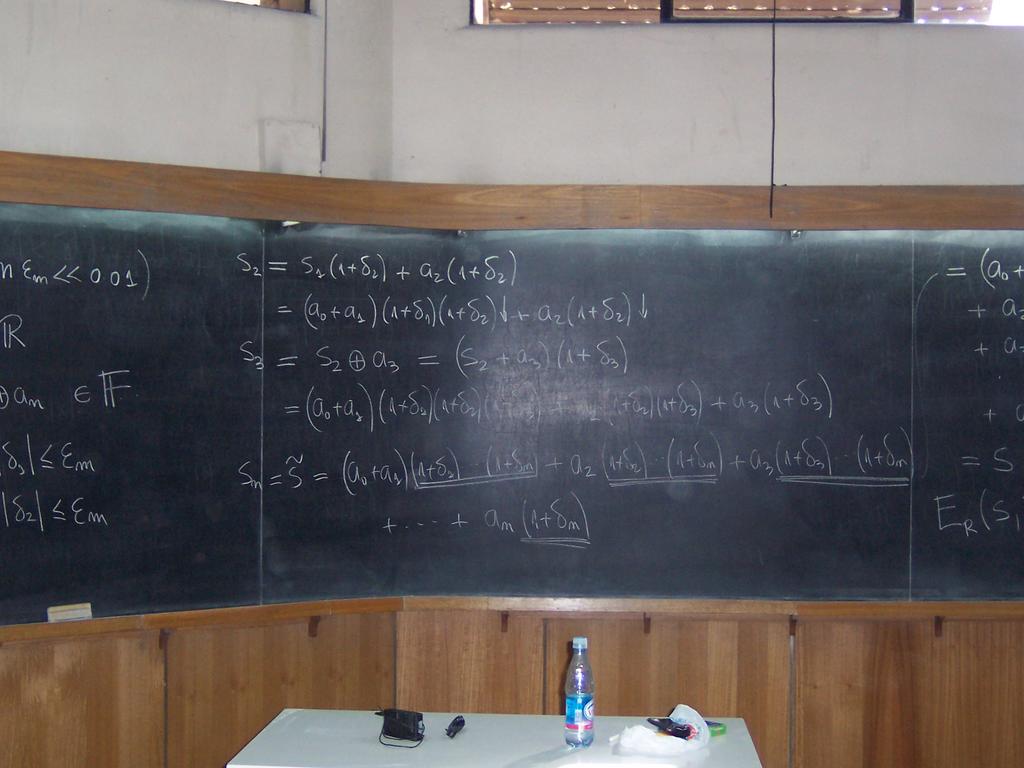 n εm << 0.01)
ℝ
⊕ an ∈ 𝔽
δ1| ≤ εm
|δ2| ≤ εm
S2 = S1(1+δ2) + a2(1+δ2)
= (a0+a1)(1+δ1)(1+δ2)↓ + a2(1+δ2)↓
S3 = S2 ⊕ a3 = (S2+a3)(1+δ3)
= (a0+a1)(1+δ1)(1+δ2)(1+δ3) + a2(1+δ2)(1+δ3) + a3(1+δ3)
Sn = S̃ = (a0+a1)(1+δ1)...(1+δn) + a2(1+δ2)...(1+δn) + a3(1+δ3)...(1+δn)
+ ... + an(1+δn)
= (a0+
+ a2
+ a3
+ a
= S
ER(S,